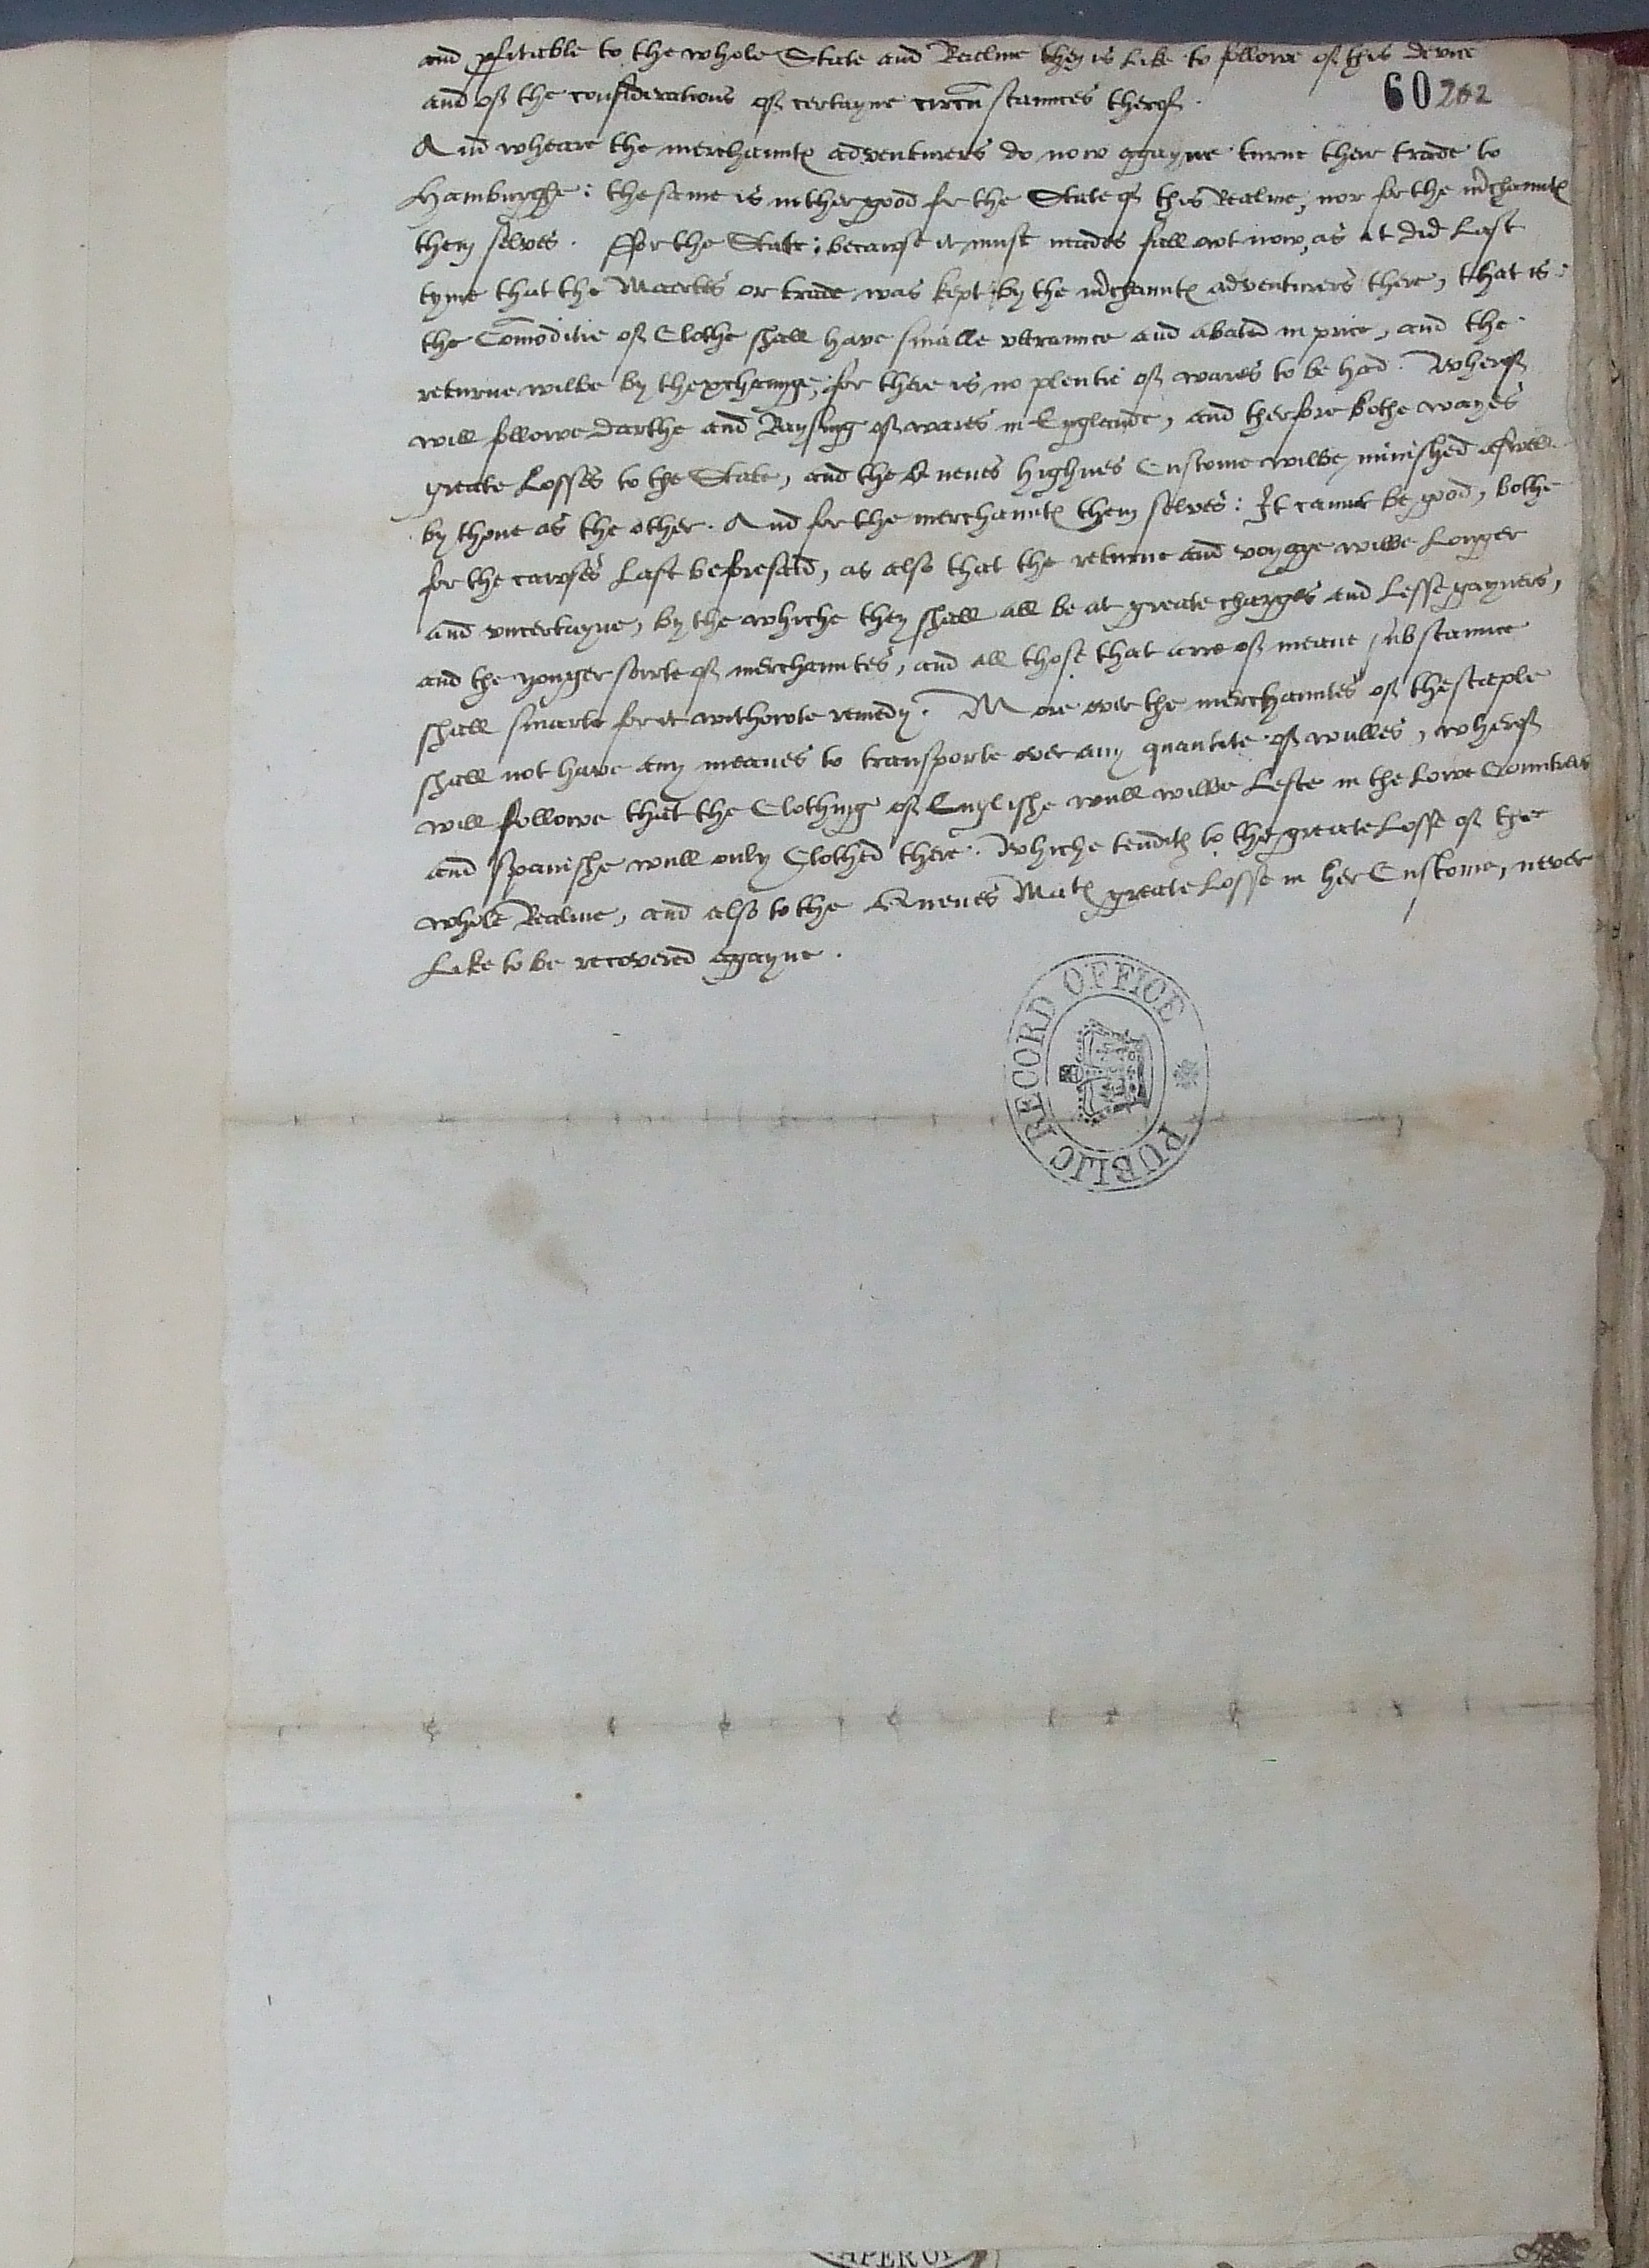 and pfitable to the whole State and Realme then is Like to followe of this device
and of the considerations of certayne circustaunces therof.
60 202
And wheare the merchaunts adventurers do now agayne turne their trade to
Hamburghe: the same is nether good for the State of this Realme, nor for the mchaunts
them selves. ffor the State: becawse it must neades fall owt now, as it did Last
tyme that the Maertes or trade was kept by the mchaunts adventurers there, that is:
the Comoditie of Clothe shall have smalle vttraunce and abated in price, and the
returne wilbe by thexchaunge, for there is no plentie of wares to be had. Wherof
will followe Darthe and Raysing of wares in Englande, and therfore bothe wayes
greate Losses to the State, and the Quenes highnes Custome wilbe minished aswell
by thone as the other. And for the merchaunts them selves: It cannot be good, bothe
for the cawses Last beforesaid, as also that the returne and voyage wilbe Longer
and vncertayne, by the whiche they shall all be at greate charges and Lesse gayners,
and the yonger sorte of merchauntes, and all those that arre of meane substaunce
shall smarte for it withowte remedy. More over the merchauntes of the staple
shall not have any meanes to transporte over any quantite of wulles, wherof
will followe that the Clothing of Englishe wull wilbe Lefte in the Lowe Countries
and Spanishe wull only Clothed there. Whiche tendith to the greate Losse of the
whole Realme, and also to the Quenes Mats greate Losse in her Custome, never
Like to be recovered agayne.
PUBLIC RECORD OFFICE